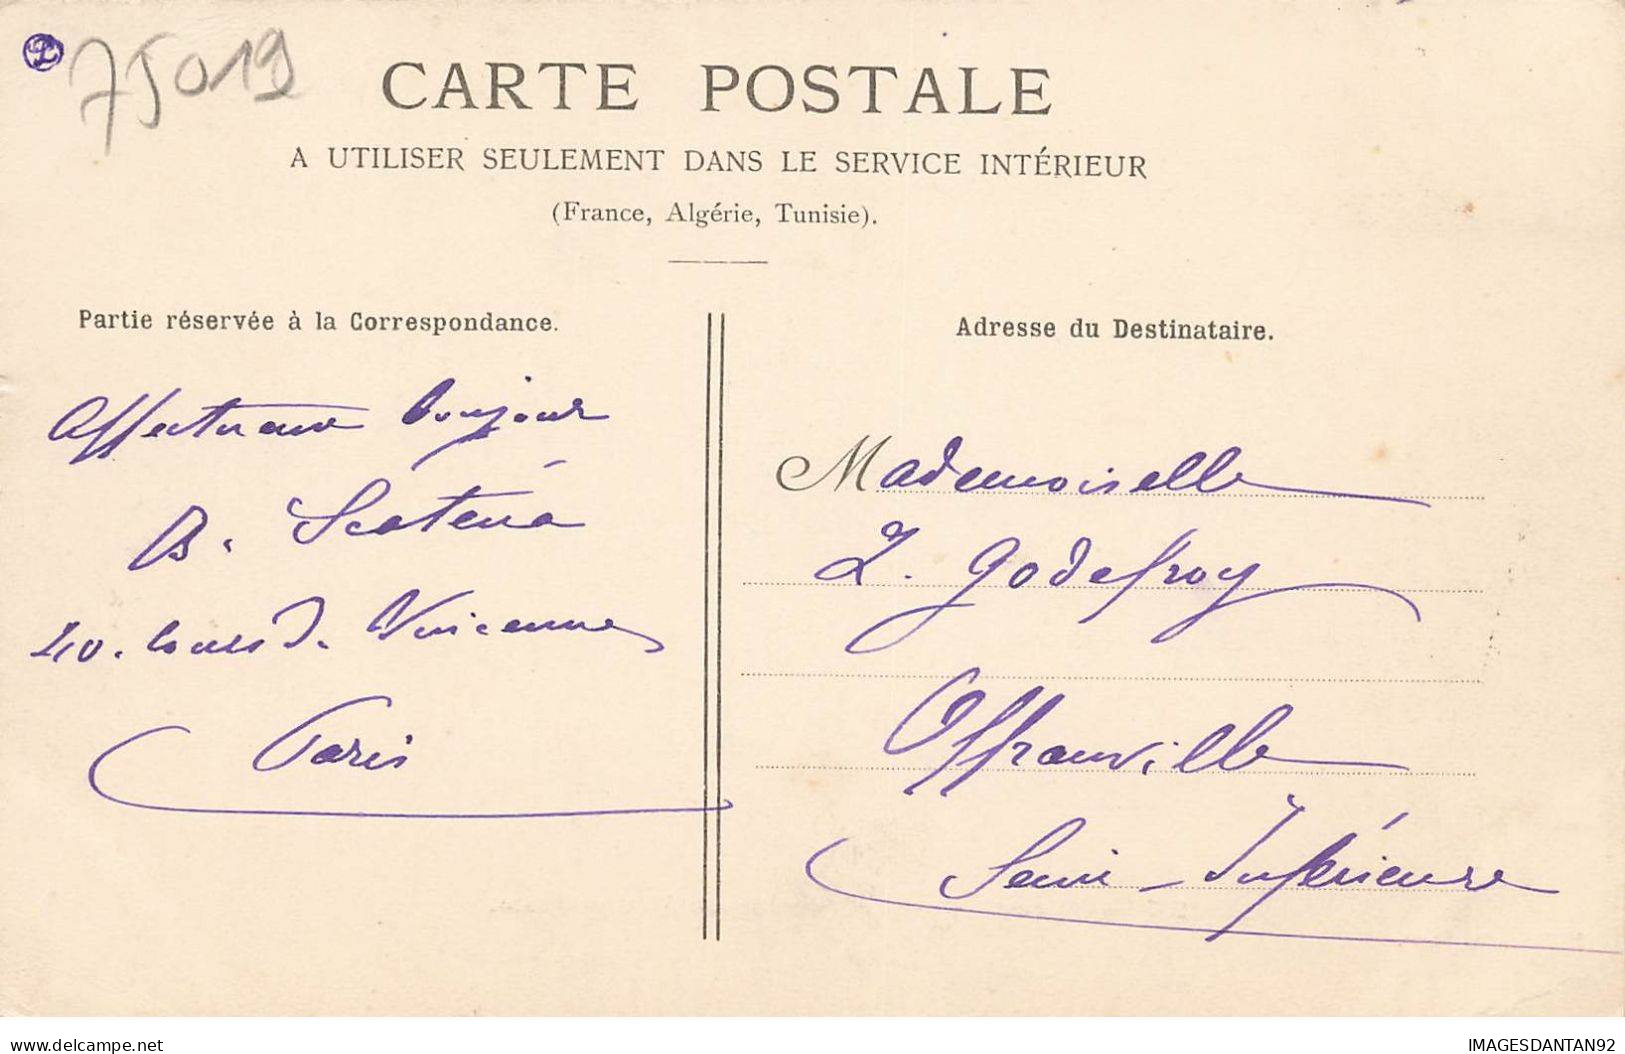 75019
CARTE POSTALE
A UTILISER SEULEMENT DANS LE SERVICE INTÉRIEUR
(France, Algérie, Tunisie).
Partie réservée à la Correspondance.
Affectueux bonjour
B. Scaténa
40. Cours de Vincennes
Paris
Adresse du Destinataire.
Mademoiselle
Z. Godefroy
Offranville
Seine-Inférieure
delcampe.net
IMAGESDANTAN92